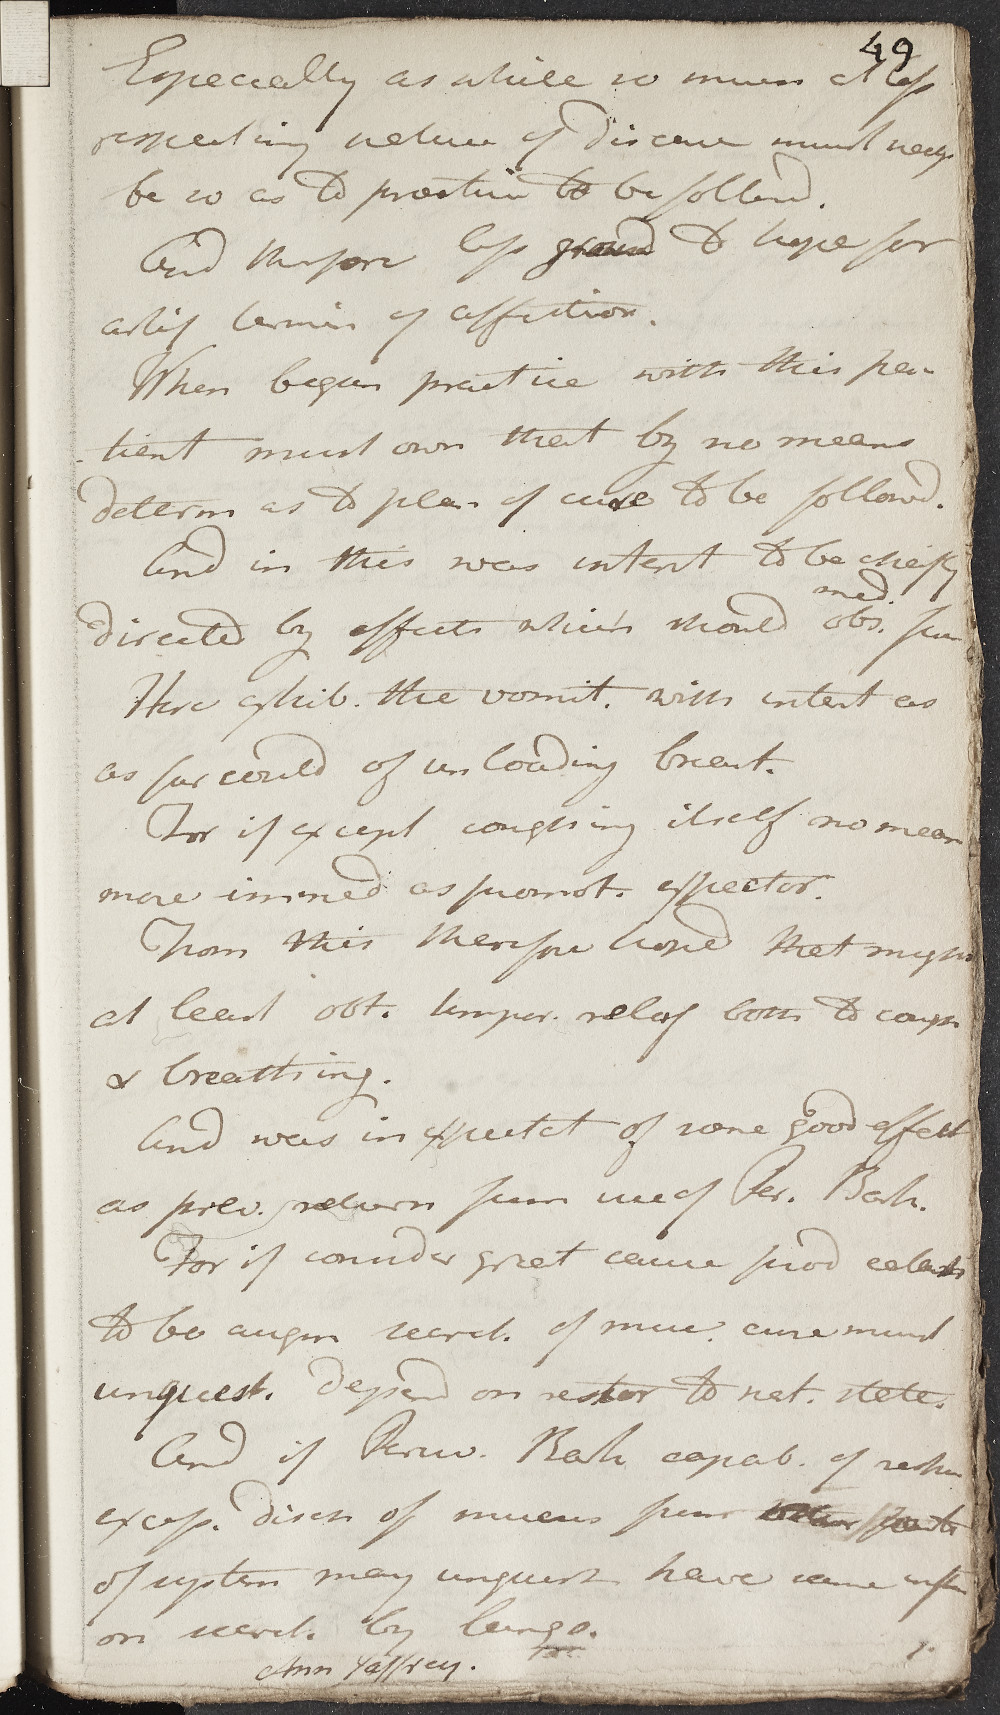 49
Especially as while so much at loss
respecting nature of disease must necess
be so as to practice to be followd.
And therfore less ground to hope for
artif termin of affection.
When began practice with this pa-
tient must own that by no means
determ as to plan of cure to be followd.
And in this was intent to be chiefly
med.
directed by effects which should obs. from
Here exhib. the vomit. with intent as
as far could of unloading breast.
For if except coughing itself no mean
more immed as promot. expector.
From this therefore hoped that might
at least obt. tempor. relief both to cough
& breathing.
And was in expectat of some good effect
as prev. return from use of Per. Bark.
For if consider great cause prod
to be augm secret. of muc. cure must
unquest. depend on restor to nat. state.
And if Peruv. Bark capab. of restr
excess. disch of mucus from other parts
of system may unquest have same infl
on secret. by lungs.
Ann Jaffrey.